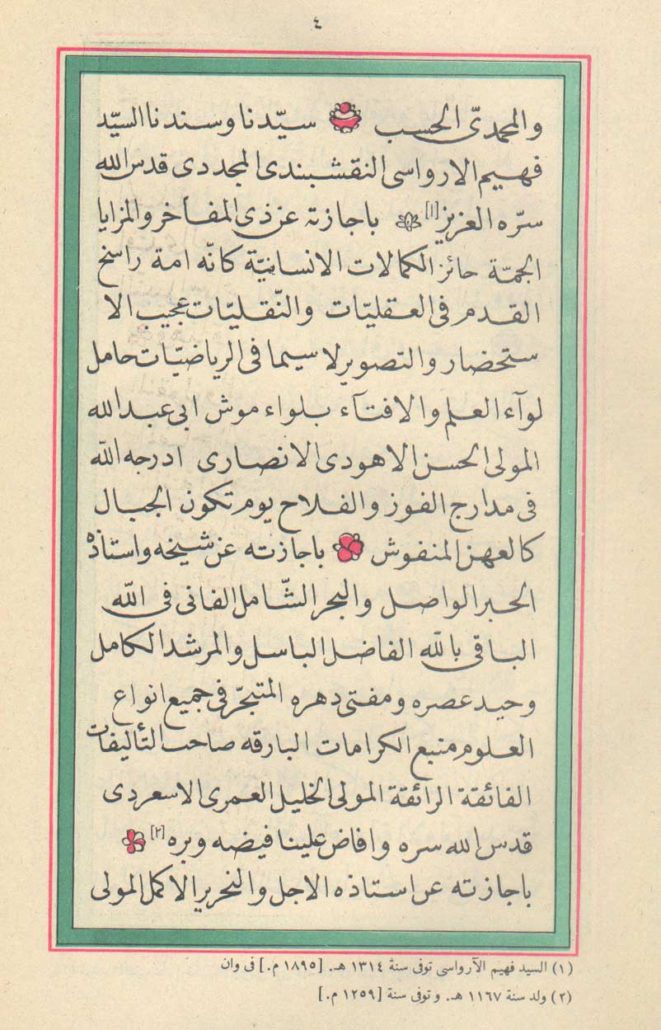 ٤
والمحمدىّ الحسب سيّدنا وسندنا السيّد
فهيم الارواسى النقشبندى المجددى قدس الله
سرّه العزيز[١] باجازته عن ذى المفاخر والمزايا
الجمّة حائز الكمالات الانسانيّة كانّه امة راسخ
القدم فى العقليّات والنّقليّات عجيب الا
ستحضار والتصوير لاسيما فى الرياضيّات حامل
لوآء العلم والافتآء بلواء موش ابى عبد الله
المولى الحسن الاهودى الانصارى ادرجه الله
فى مدارج الفوز والفلاح يوم تكون الجبال
كالعهن المنفوش باجازته عن شيخه واستاذه
الحبر الواصل والبحر الشّامل الفانى فى الله
الباقى بالله الفاضل الباسل والمرشد الكامل
وحيد عصره ومفتى دهره المتبحّر فى جميع انواع
العلوم منبع الكرامات البارقه صاحب التأليفات
الفائقة الرائقة المولى الخليل العمرى الاسعردى
قدس الله سره وافاض علينا فيضه وبره[٢]
باجازته عن استاذه الاجل والنحرير الاكمل المولى
(١) السيد فهيم الآرواسى توفى سنة ١٣١٤ هـ. [١٨٩٥ م.] فى وان
(٢) ولد سنة ١١٦٧ هـ. و توفى سنة [١٢٥٩ م.]